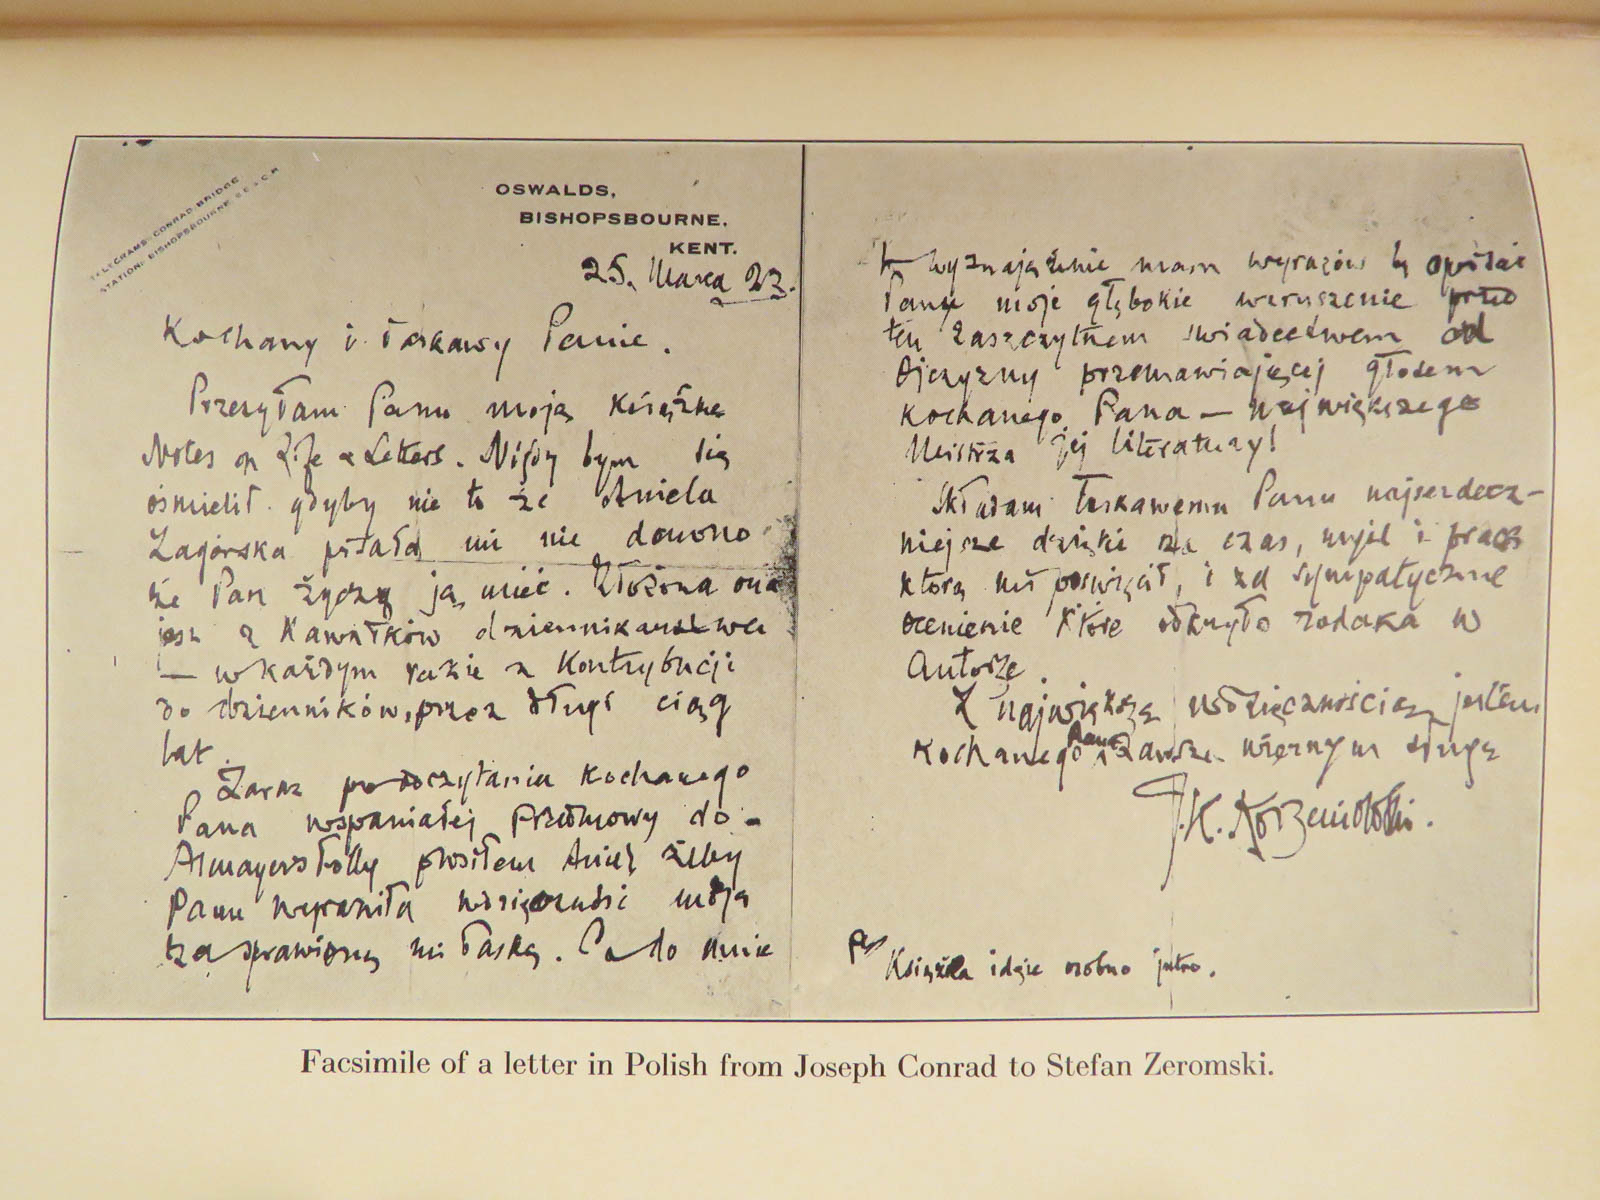 TELEGRAMS: CONRAD, BRIDGE
STATION: BISHOPSBOURNE. S.E. & C.R
OSWALDS,
BISHOPSBOURNE,
KENT.
25. Marca 23.
Kochany i Łaskawy Panie.
Przesyłam Panu moją książkę
Notes on Life & Letters. Nigdy bym się
ośmielił gdyby nie to że Aniela
Zagórska pisała mi nie dawno
że Pan życzy ją mieć. Złożona ona
jest z Kawałków dziennikarstwa
— w każdym razie z Kontrybucji
do dzienników, przez długi ciąg
lat.
Zaraz po odczytaniu Kochanego
Pana wspaniałej Przedmowy do
Almayers Folly prosiłem Anielę żeby
Panu wyraziła wdzięczność moją
za sprawioną mi łaskę. Co do mnie
to wyznaję że nie mam wyrazów by opisać
Panu moje głębokie wzruszenie przed
tem zaszczytnem swiadectwem od
Ojczyzny przemawiającej głosem
Kochanego Pana — największego
Mistrza jej literatury!
Składam Łaskawemu Panu najserdecz-
niejsze dzięki za czas, myśl i pracę
którą mi poswięcił, i za sympatyczne
ocenienie które odkryło rodaka w
Autorze.
Z największą wdzięcznością jestem
Kochanego Pana zawsze wiernym sługą
J.K. Korzeniowski.
PS Książka idzie osobno jutro.
Facsimile of a letter in Polish from Joseph Conrad to Stefan Zeromski.